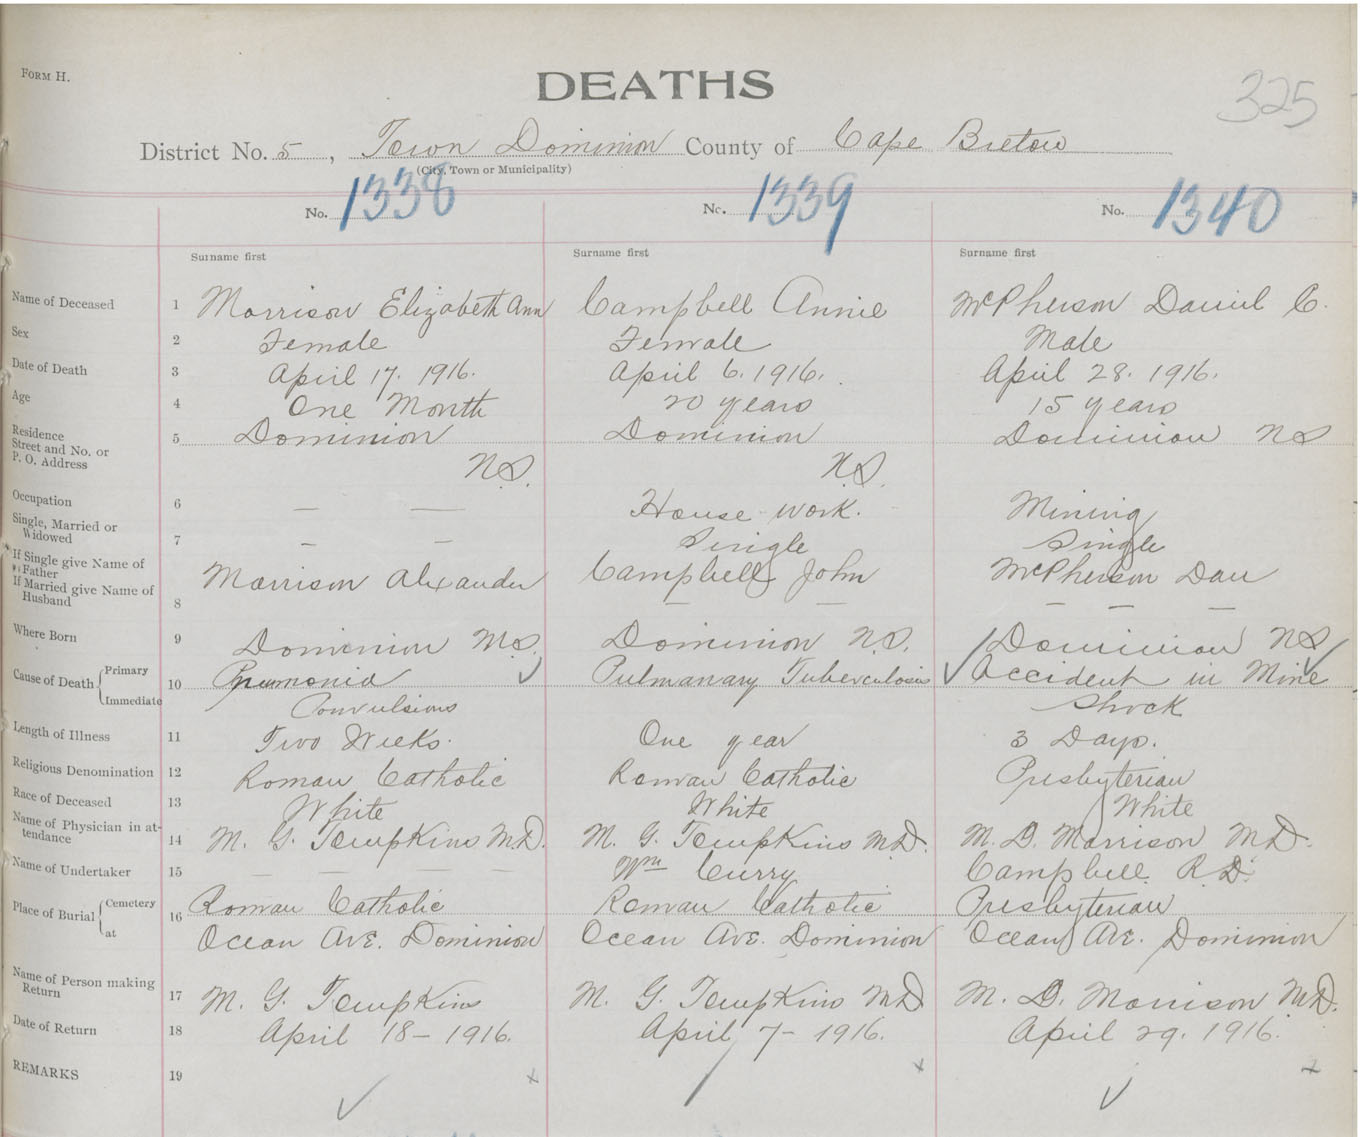 FORM H.
DEATHS
325
District No. 5, Town Dominion County of Cape Breton
(City, Town or Municipality)
No. 1338 No. 1339 No. 1340
Surname first Surname first Surname first
Name of Deceased 1 Morrison Elizabeth Ann Campbell Annie McPherson Daniel C.
Sex 2 Female Female Male
Date of Death 3 April 17. 1916. April 6. 1916. April 28. 1916.
Age 4 One Month 20 years 15 years
Residence Street and No. or P. O. Address 5 Dominion Dominion Dominion NS
N.S. N.S.
Occupation 6 — — House work. Mining
Single, Married or Widowed 7 — — Single Single
If Single give Name of Father Morrison Alexander Campbell John McPherson Dan
If Married give Name of Husband 8 — — — — —
Where Born 9 Dominion N.S. Dominion N.S. Dominion NS
Cause of Death { Primary 10 Pnumonia Pulmanary Tuberculosis Accident in Mine
Immediate Convulsions Shock
Length of Illness 11 Two Weeks. One year 3 Days.
Religious Denomination 12 Roman Catholic Roman Catholic Presbyterian
Race of Deceased 13 White White White
Name of Physician in attendance 14 M. G. Tompkins M.D. M. G. Tompkins M.D. M. D. Morrison M.D.
Name of Undertaker 15 — — — — — Wm Curry Campbell R.D.
Place of Burial { Cemetery 16 Roman Catholic Roman Catholic Presbyterian
at Ocean Ave. Dominion Ocean Ave. Dominion Ocean Ave. Dominion
Name of Person making Return 17 M. G. Tompkins M. G. Tompkins MD M. D. Morrison M.D.
Date of Return 18 April 18 – 1916. April 7 – 1916. April 29. 1916.
REMARKS 19